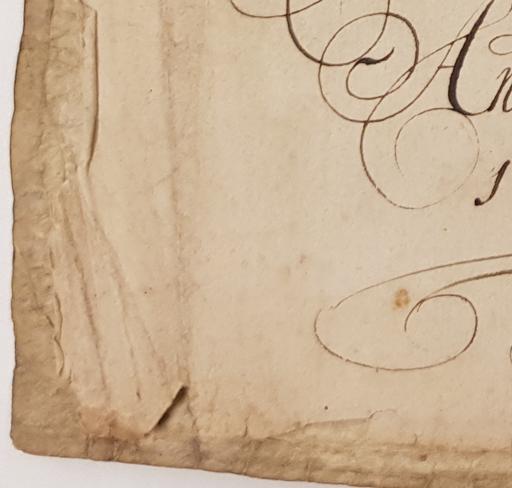 An
1